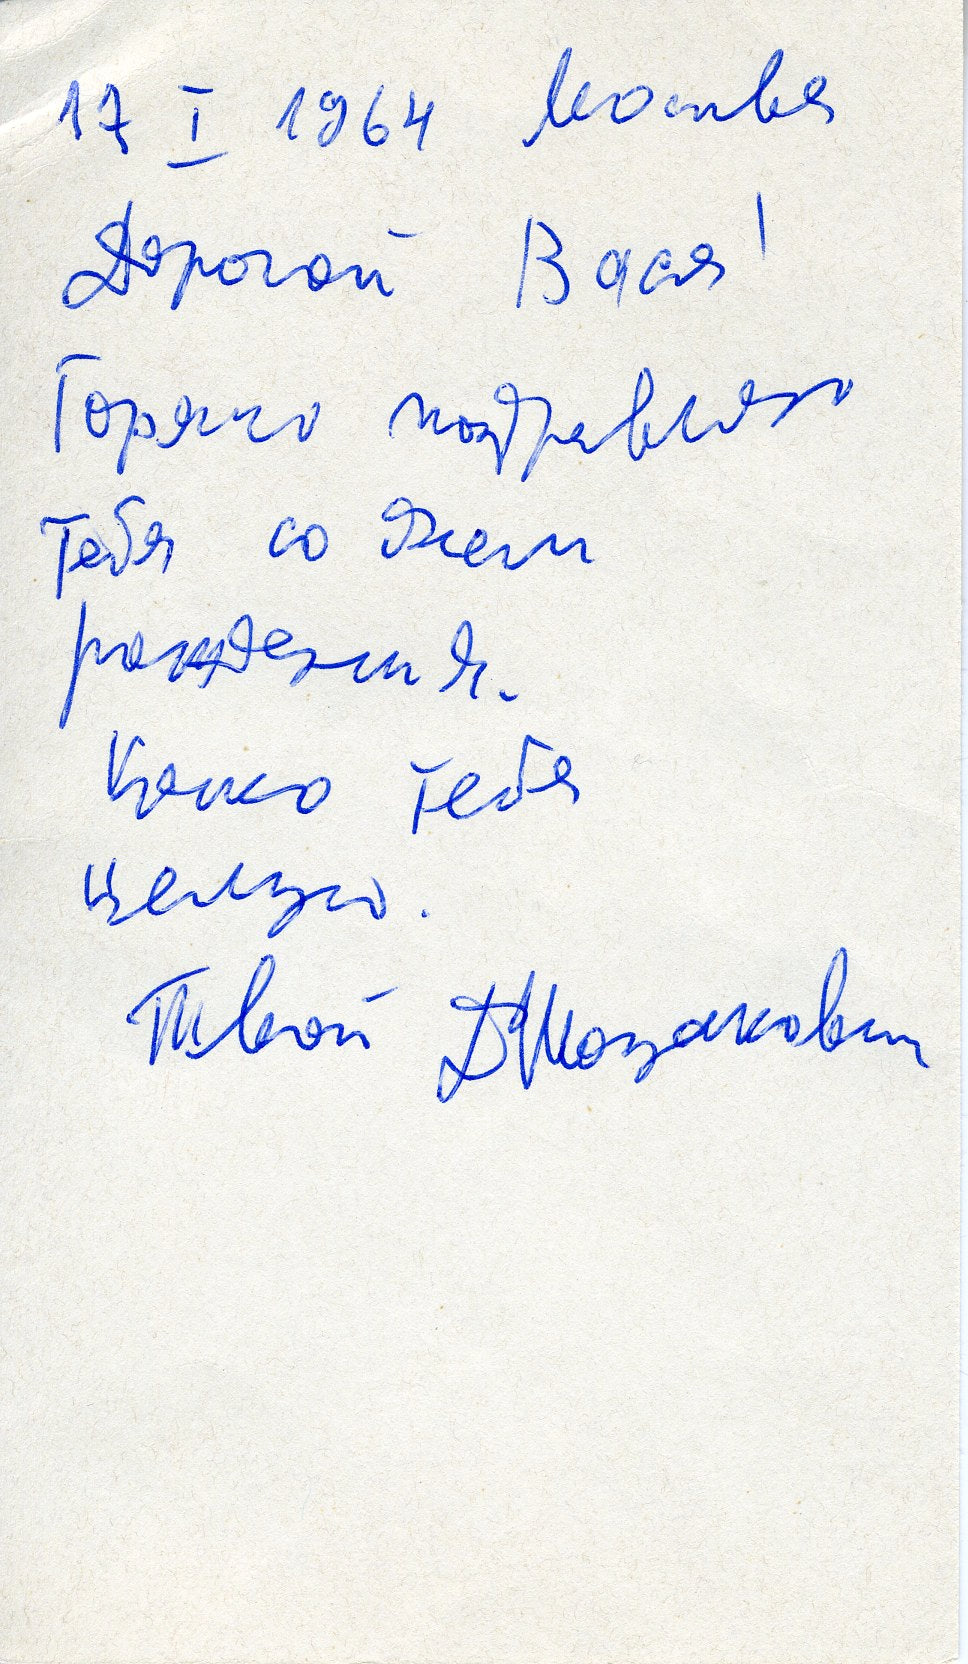 17 I 1964 Москва
Дорогой Вася!
Горячо поздравляю
тебя со днем
рождения.
Крепко тебя
целую.
Твой ДШостакович